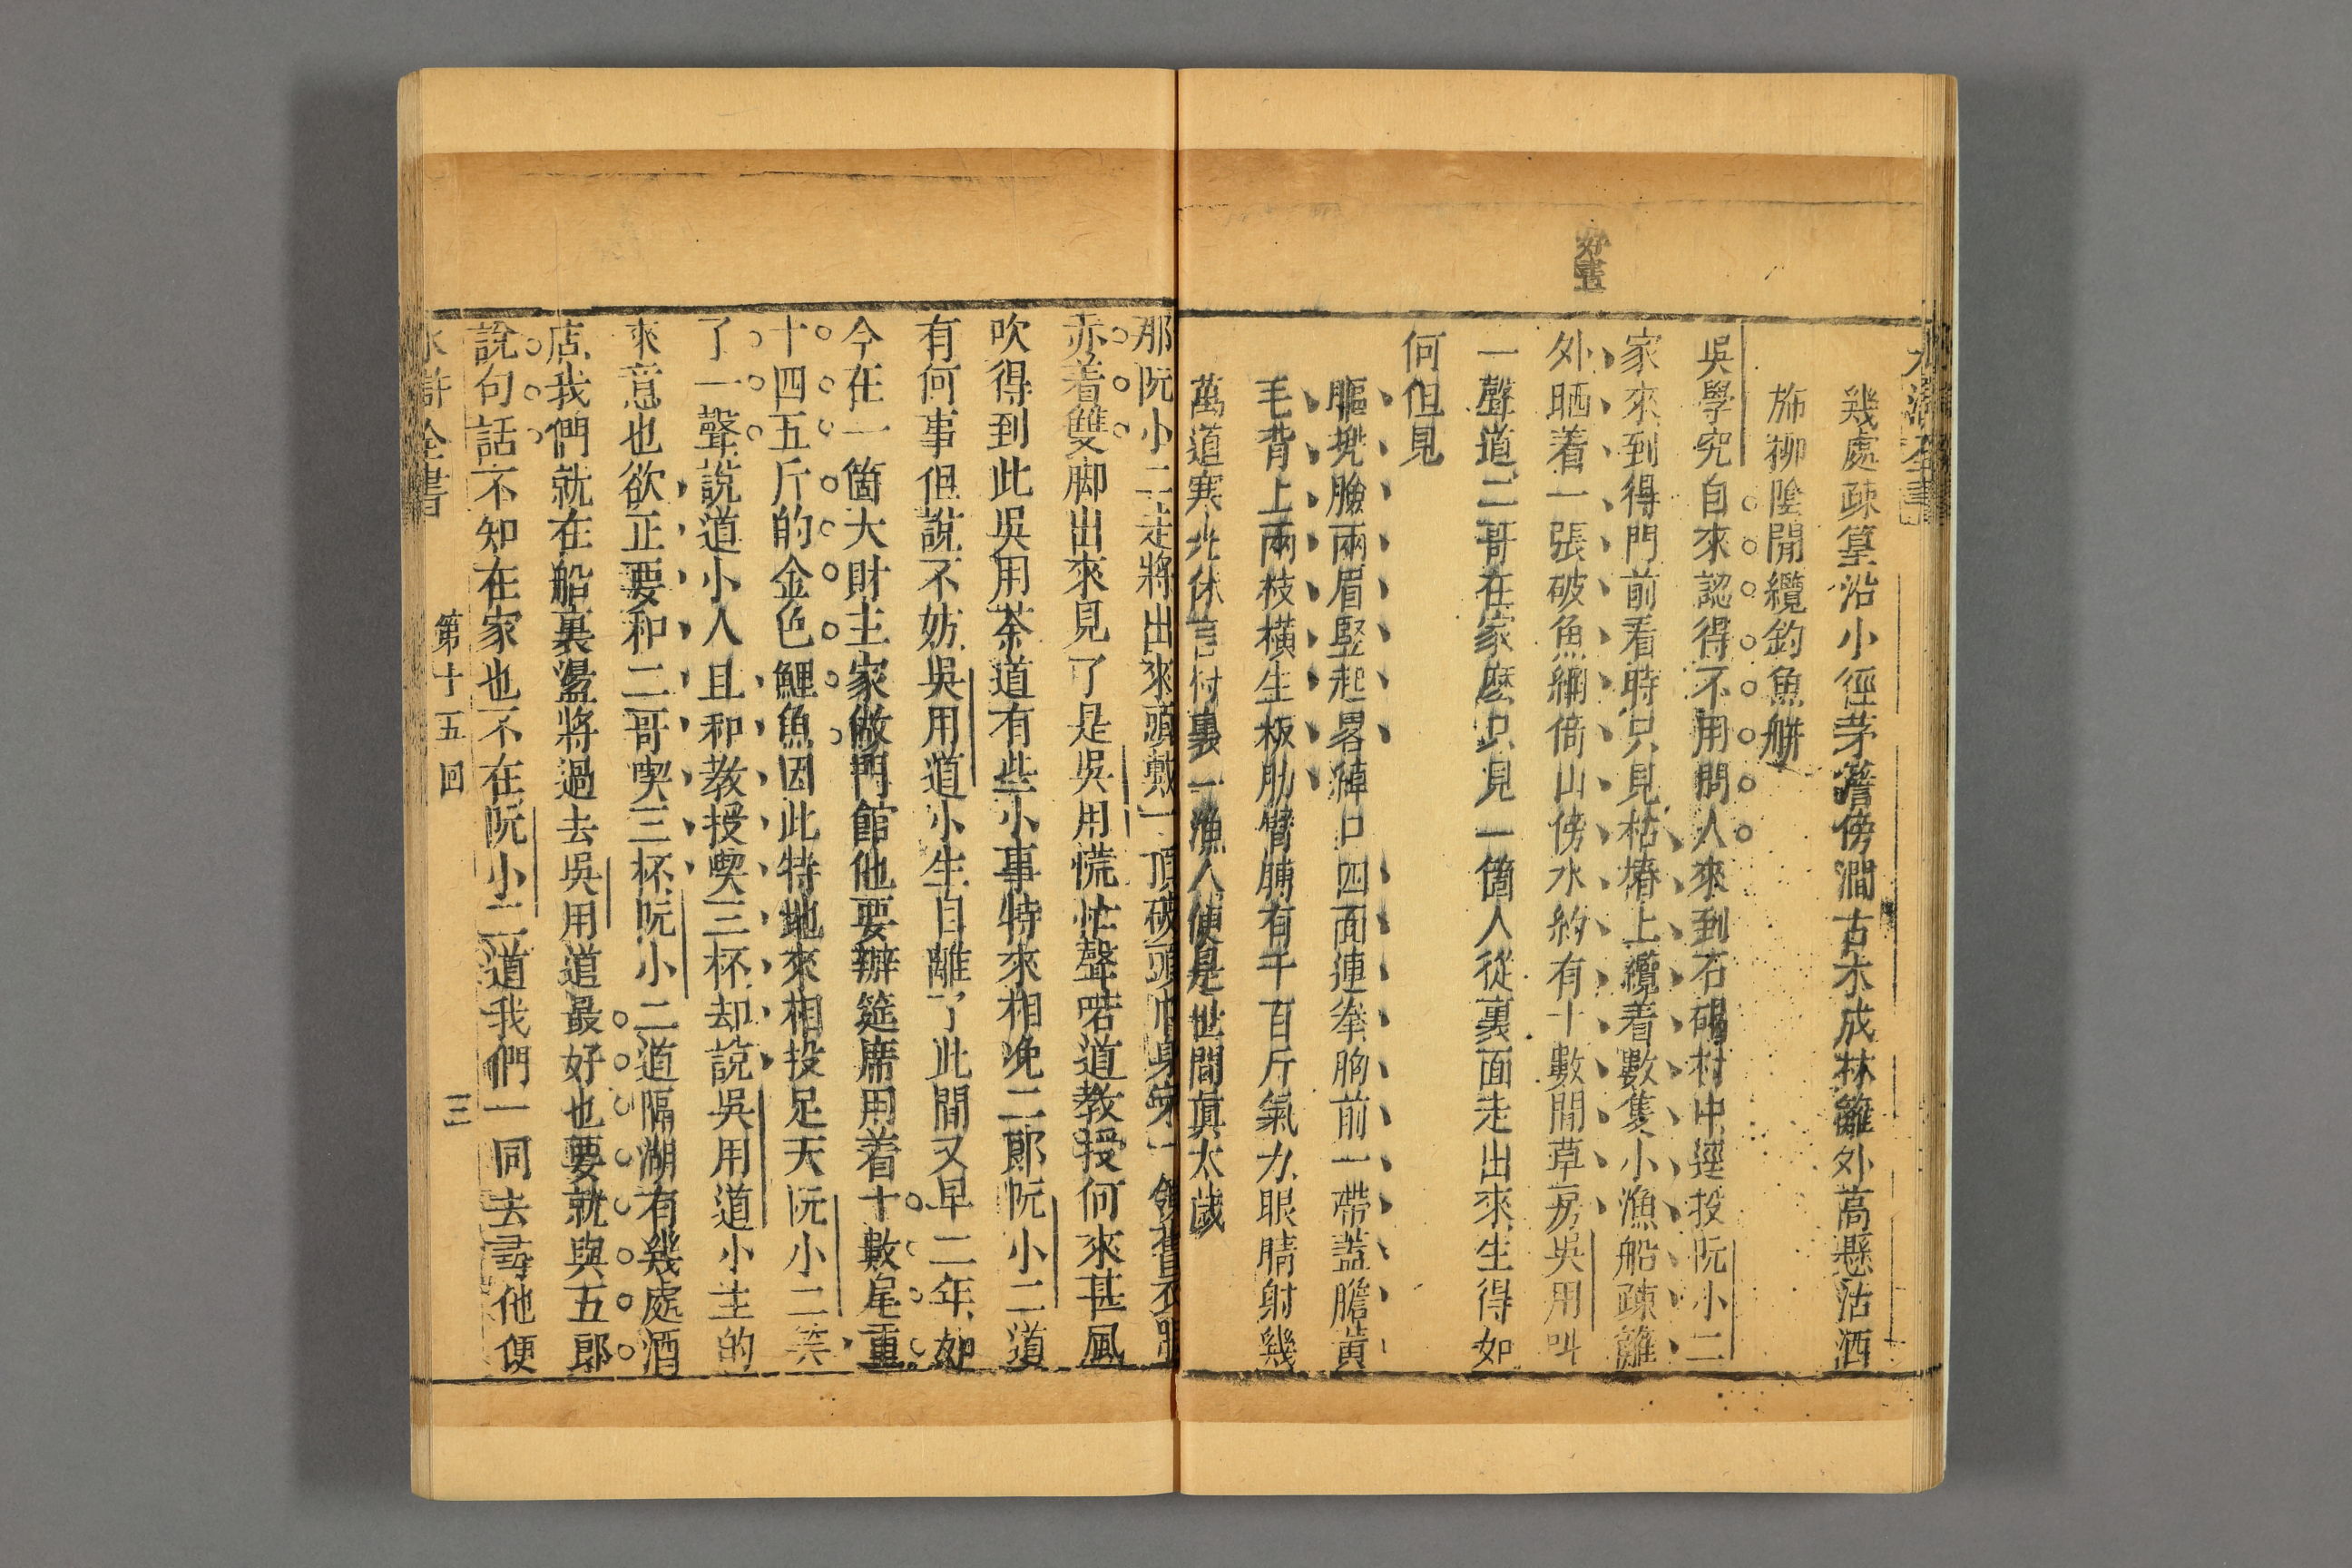 水滸全書
好畫
幾處疎篁沿小徑茅簷傍澗古木成林籬外高懸沽酒
斾柳陰閒纜釣魚舡
吳學究自來認得不用問人來到石碣村中逕投阮小二
家來到得門前看時只見枯樁上纜着數隻小漁船疎籬
外晒着一張破魚網倚山傍水約有十數間草房吳用叫
一聲道二哥在家麽只見一箇人從裏面走出來生得如
何但見
䁱兜臉兩眉竪起畧綽口四面連拳胸前一帶蓋膽黃
毛背上兩枝橫生板肋臂膊有千百斤氣力眼睛射幾
萬道寒光休言村裏一漁人便是世間眞太歲
那阮小二走將出來頭戴一頂破頭巾身穿一領舊衣服
赤着雙脚出來見了是吳用慌忙聲喏道教授何來甚風
吹得到此吳用荅道有些小事特來相浼二郞阮小二道
有何事但說不妨吳用道小生自離了此間又早二年如
今在一箇大財主家做門館他要辦筵席用着十數尾重
十四五斤的金色鯉魚因此特地來相投足天阮小二笑
了一聲說道小人且和教授喫三杯却說吳用道小生的
來意也欲正要和二哥喫三杯阮小二道隔湖有幾處酒
店我們就在船裏盪將過去吳用道最好也要就與五郞
說句話不知在家也不在阮小二道我們一同去尋他便
水滸全書
第十五囘
三